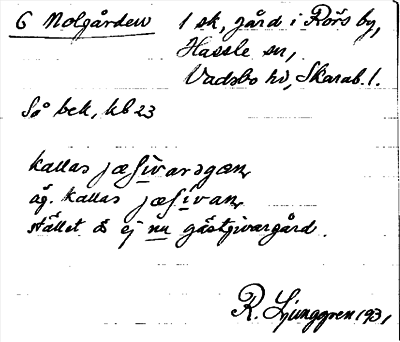 6 Nolgården 1 sk, gård i Rörs by,
Hassle sn,
Vadsbo hd, Skarab. l.
Så bek, kb 23
kallas jæʃivarsgæn,
äg. kallas jæʃivan,
stället är ej nu gästgivargård.
R. Ljunggren 1931